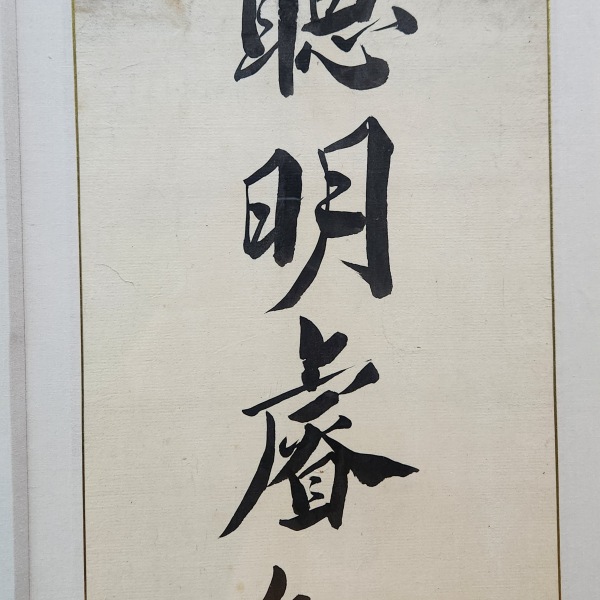 聰明睿